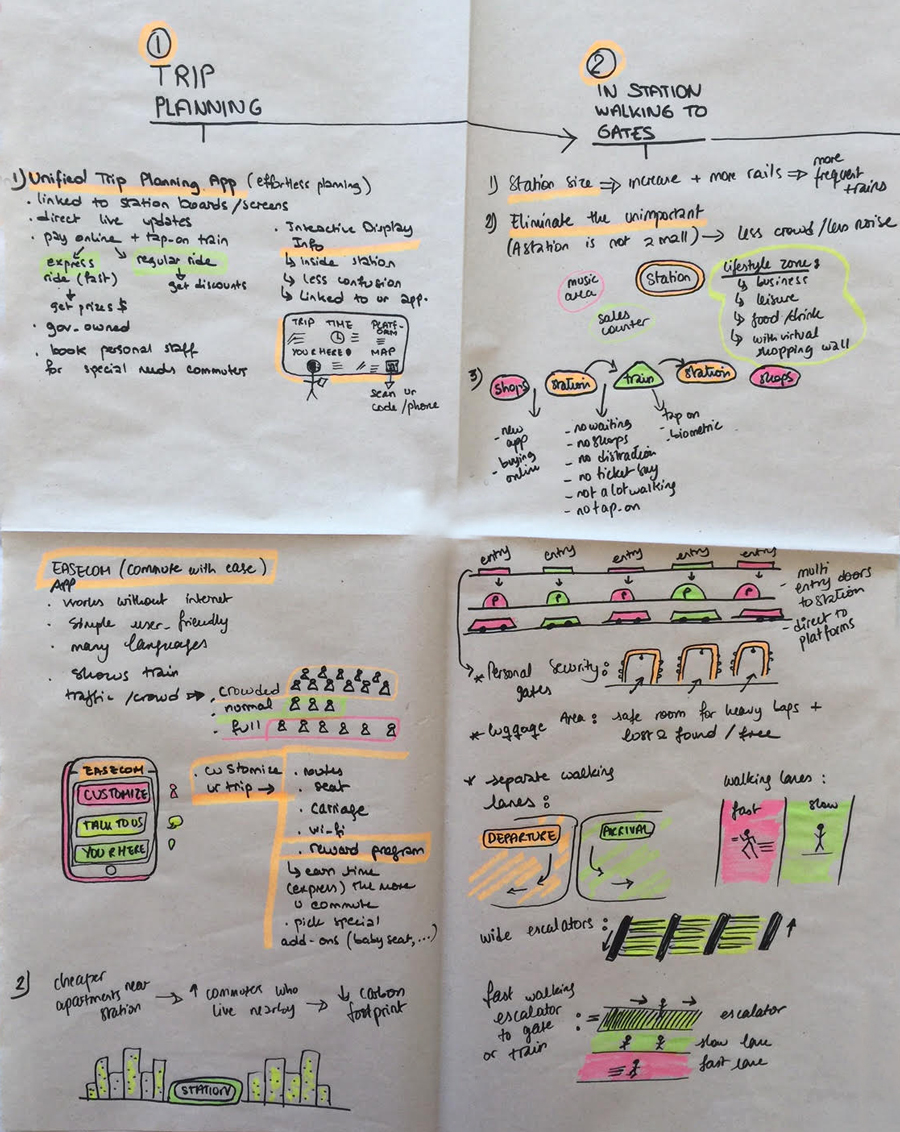 1
TRIP
PLANNING
1) Unified Trip Planning App (effortless planning)
· linked to station boards/screens
· direct live updates
· pay online + tap-on train
express
ride (fast)
get prizes $
regular ride
get discounts
· gov-owned
· book personal staff
for special needs commuter
· Interactive Display
Info
↳ inside station
↳ less confusion
↳ linked to ur app.
TRIP TIME PLATF-
ORM
YOU R HERE MAP
scan ur
code/phone
2
IN STATION
WALKING TO
GATES
1) Station size ⇒ increase + more rails ⇒ more
frequent
trains
2) Eliminate the unimportant
(A station is not a mall) → less crowd/less noise
music
area
Station
sales
counter
lifestyle zone:
↳ business
↳ leisure
↳ food/drink
↳ with virtual
shopping wall
3) shops station train station shops
- new
app
- buying
online
- no waiting
- no shops
- no distraction
- no ticket buy
- not a lot walking
- no tap-on
- tap on
- biometric
EASECOM (commute with ease)
APP
· works without internet
· simple user-friendly
· many languages
· shows train
traffic/crowd → · crowded
· normal
· full
EASECOM
CUSTOMIZE
TALK TO US
YOU R HERE
· customize
ur trip →
· routes
· seat
· carriage
· wi-fi
· reward program
↳ earn time
(express) the more
u commute
· pick special
add-ons (baby seat,...)
2) cheaper
apartments near
station → ↑ commuters who
live nearby → ↓ carbon
footprint
STATION
entry entry entry entry entry
P P P P P
- multi
entry doors
to station
- direct to
platforms
* Personal Security :
gates
* Luggage Area : safe room for heavy bags +
lost & found / free
* separate walking
lanes :
DEPARTURE
ARRIVAL
walking lanes :
fast
slow
wide escalators :
fast walking
escalator
to gate
or train
:=
escalator
slow lane
fast lane